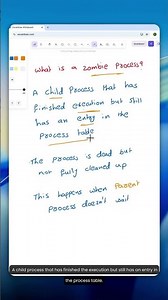 What is a zombie Process?
A child Process that has
finished execution but still
has an entry in the
Process table
The process is dead but
not fully cleaned up
This happens when Parent
process doesn't wait
A child process that has finished the execution but still has an entry in
the process table.